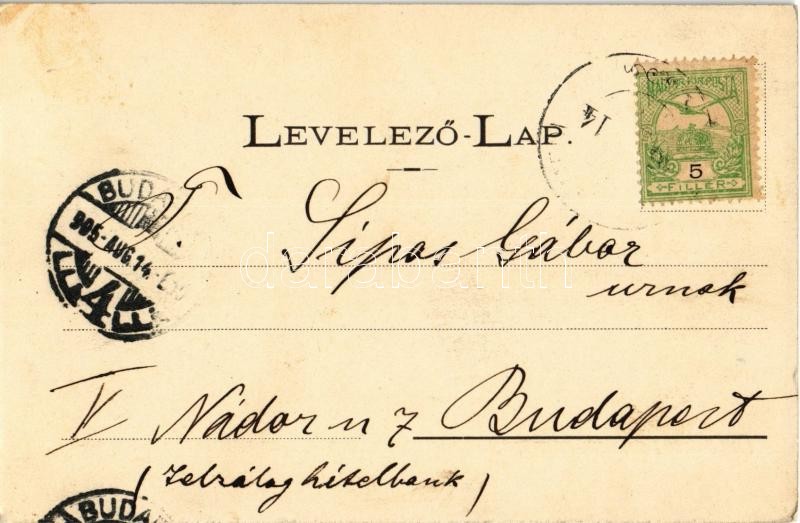 LEVELEZŐ-LAP.
MAGYAR KIR. POSTA
5
FILLÉR
14
BUDA
905 AUG. 14.
T. Sipos Gábor
urnak
darabanth
V Nádor u 7 Budapest
(Jelzáloghitelbank)
BUDA